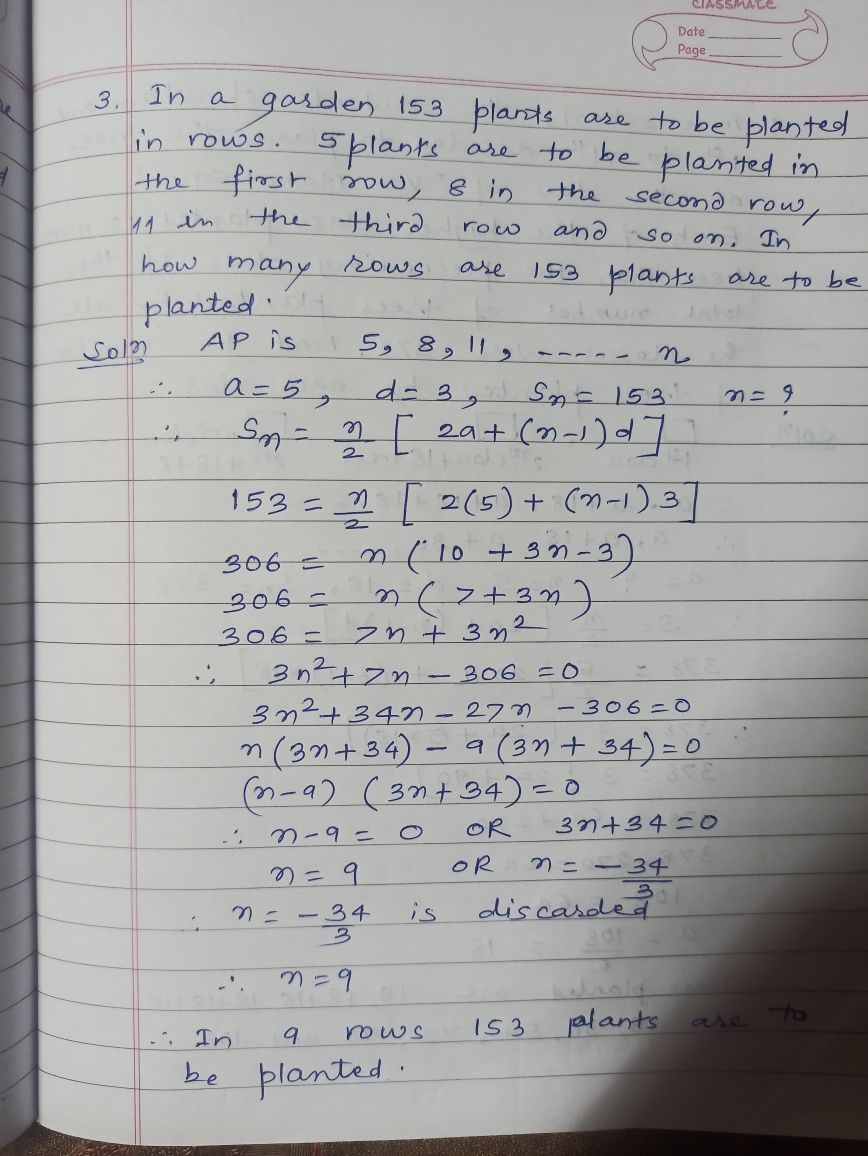 classmate
Date
Page
3. In a garden 153 plants are to be planted
in rows. 5 plants are to be planted in
the first row, 8 in the second row,
11 in the third row and so on. In
how many rows are 153 plants are to be
planted.
Soln AP is 5, 8, 11, ----- n
∴ a = 5, d = 3, Sn = 153 n = ?
∴ Sn = n/2 [ 2a + (n-1)d ]
153 = n/2 [ 2(5) + (n-1) 3 ]
306 = n ( 10 + 3n - 3 )
306 = n ( 7 + 3n )
306 = 7n + 3n²
∴ 3n² + 7n - 306 = 0
3n² + 34n - 27n - 306 = 0
n (3n + 34) - 9 (3n + 34) = 0
(n-9) (3n + 34) = 0
∴ n - 9 = 0 OR 3n + 34 = 0
n = 9 OR n = -34/3
∴ n = -34/3 is discarded
∴ n = 9
∴ In 9 rows 153 plants are to
be planted.